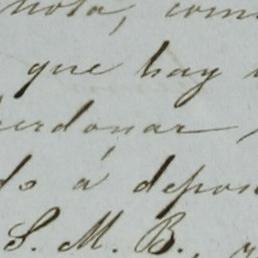 nota, com
que hay
erdonar
do á depos
S. M. B., y